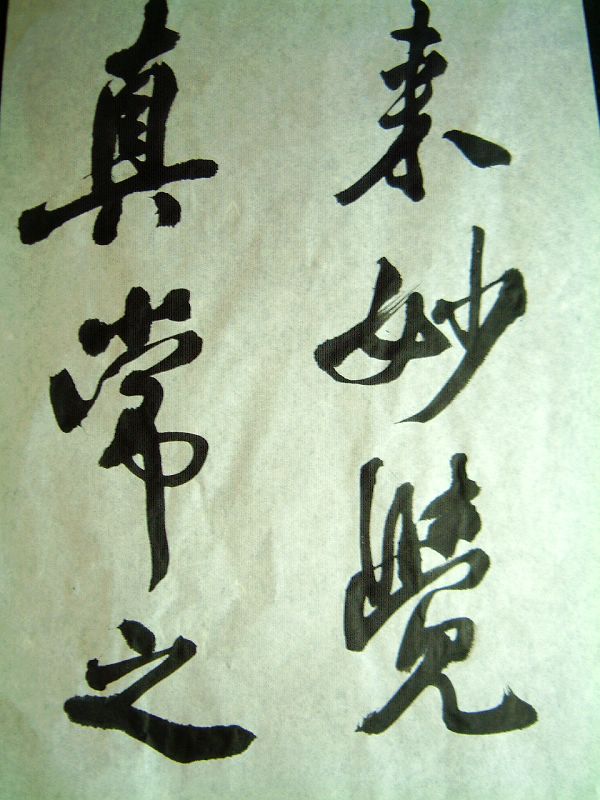 来妙覺
真常之